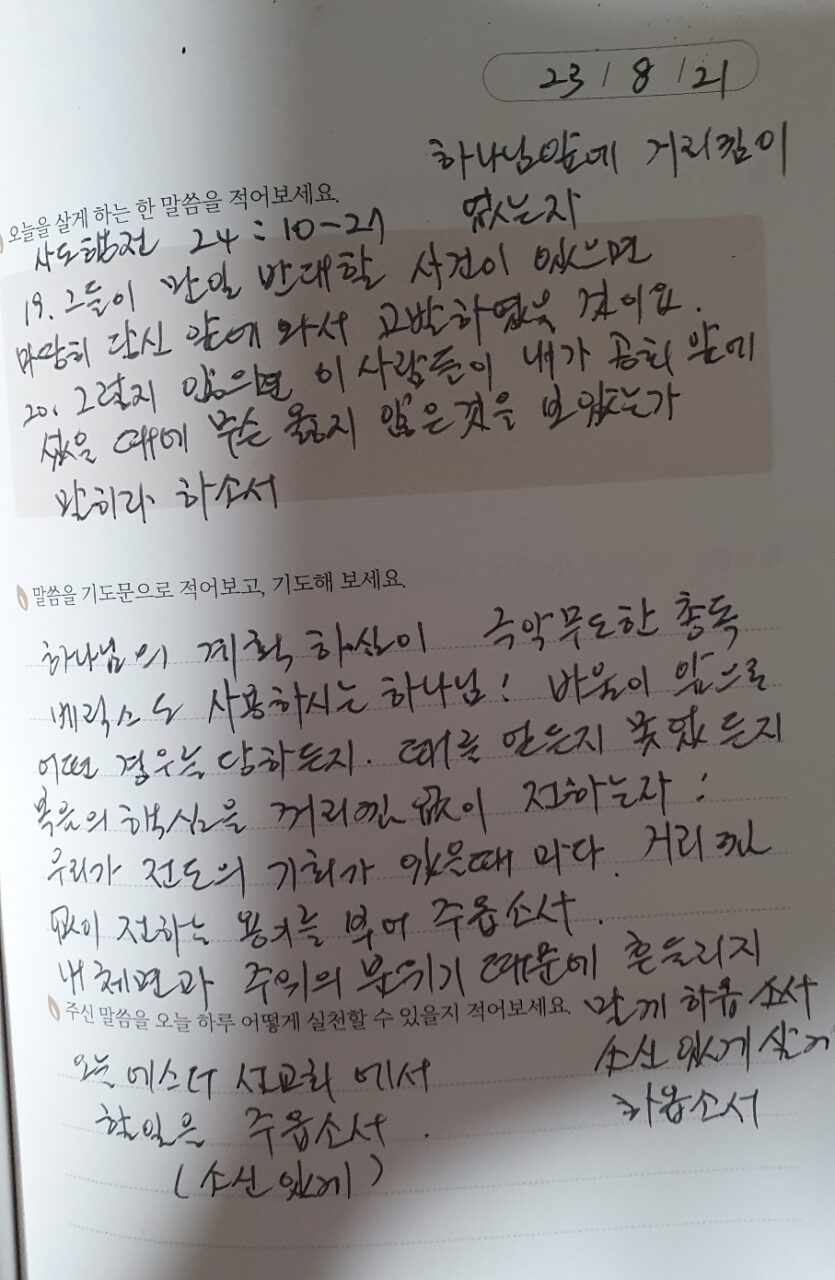 23 / 8 / 21
하나님앞에 거리낌이
없는자
오늘을 살게 하는 한 말씀을 적어보세요.
사도행전 24 : 10-21
19. 그들이 만일 반대할 사건이 있으면
마땅히 당신 앞에 와서 고발하였을 것이요.
20. 그렇지 않으면 이 사람들이 내가 공회 앞에
섰을 때에 무슨 옳지 않은것을 보았는가
말하라 하소서
말씀을 기도문으로 적어보고, 기도해 보세요.
하나님의 계획 하심이 극악무도한 총독
베릭스도 사용하시는 하나님! 바울이 앞으로
어떤 경우를 당하든지. 때를 얻든지 못얻든지
복음의 핵심을 꺼리낌 없이 전하는자!
우리가 전도의 기회가 있을때 마다. 거리낌
없이 전하는 용기를 부어 주옵소서.
내 체면과 주위의 분위기 때문에 흔들리지
주신 말씀을 오늘 하루 어떻게 실천할 수 있을지 적어보세요.
말게 하옵소서
소신 있게 살게
하옵소서
오늘 에스더 선교회 에서
할일을 주옵소서.
(소신 있게)